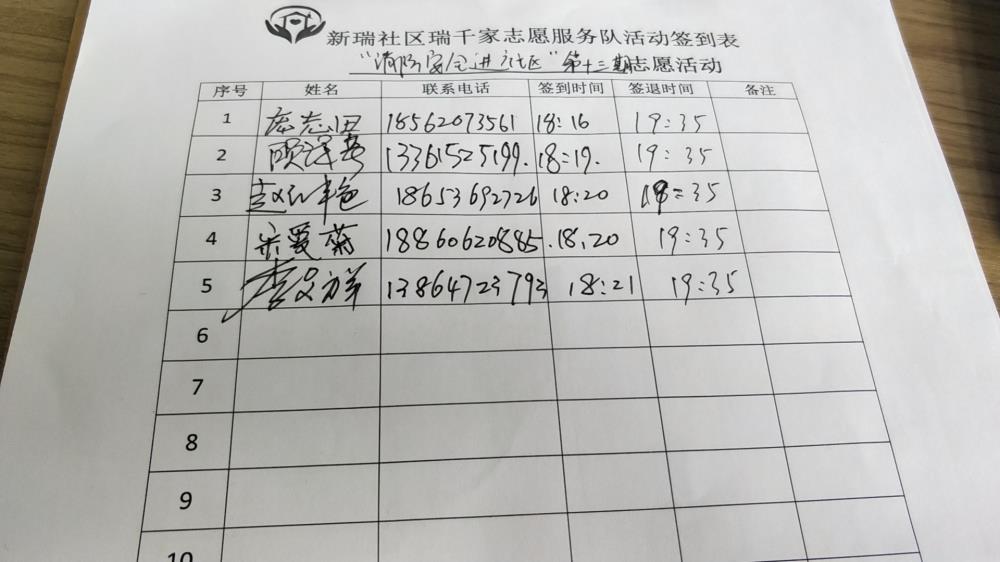 新瑞社区瑞千家志愿服务队活动签到表
“消防安全进社区”第十三期志愿活动
序号 姓名 联系电话 签到时间 签退时间 备注
1 志田 18562073561 18:16 19:35
2 13361525199. 18:19. 19:35
3 赵 18653692726 18:20 19:35
4 宋爱菊 18860620885 .18.20 19:35
5 李文祥 13864723793 18:21 19:35
6
7
8
9
10